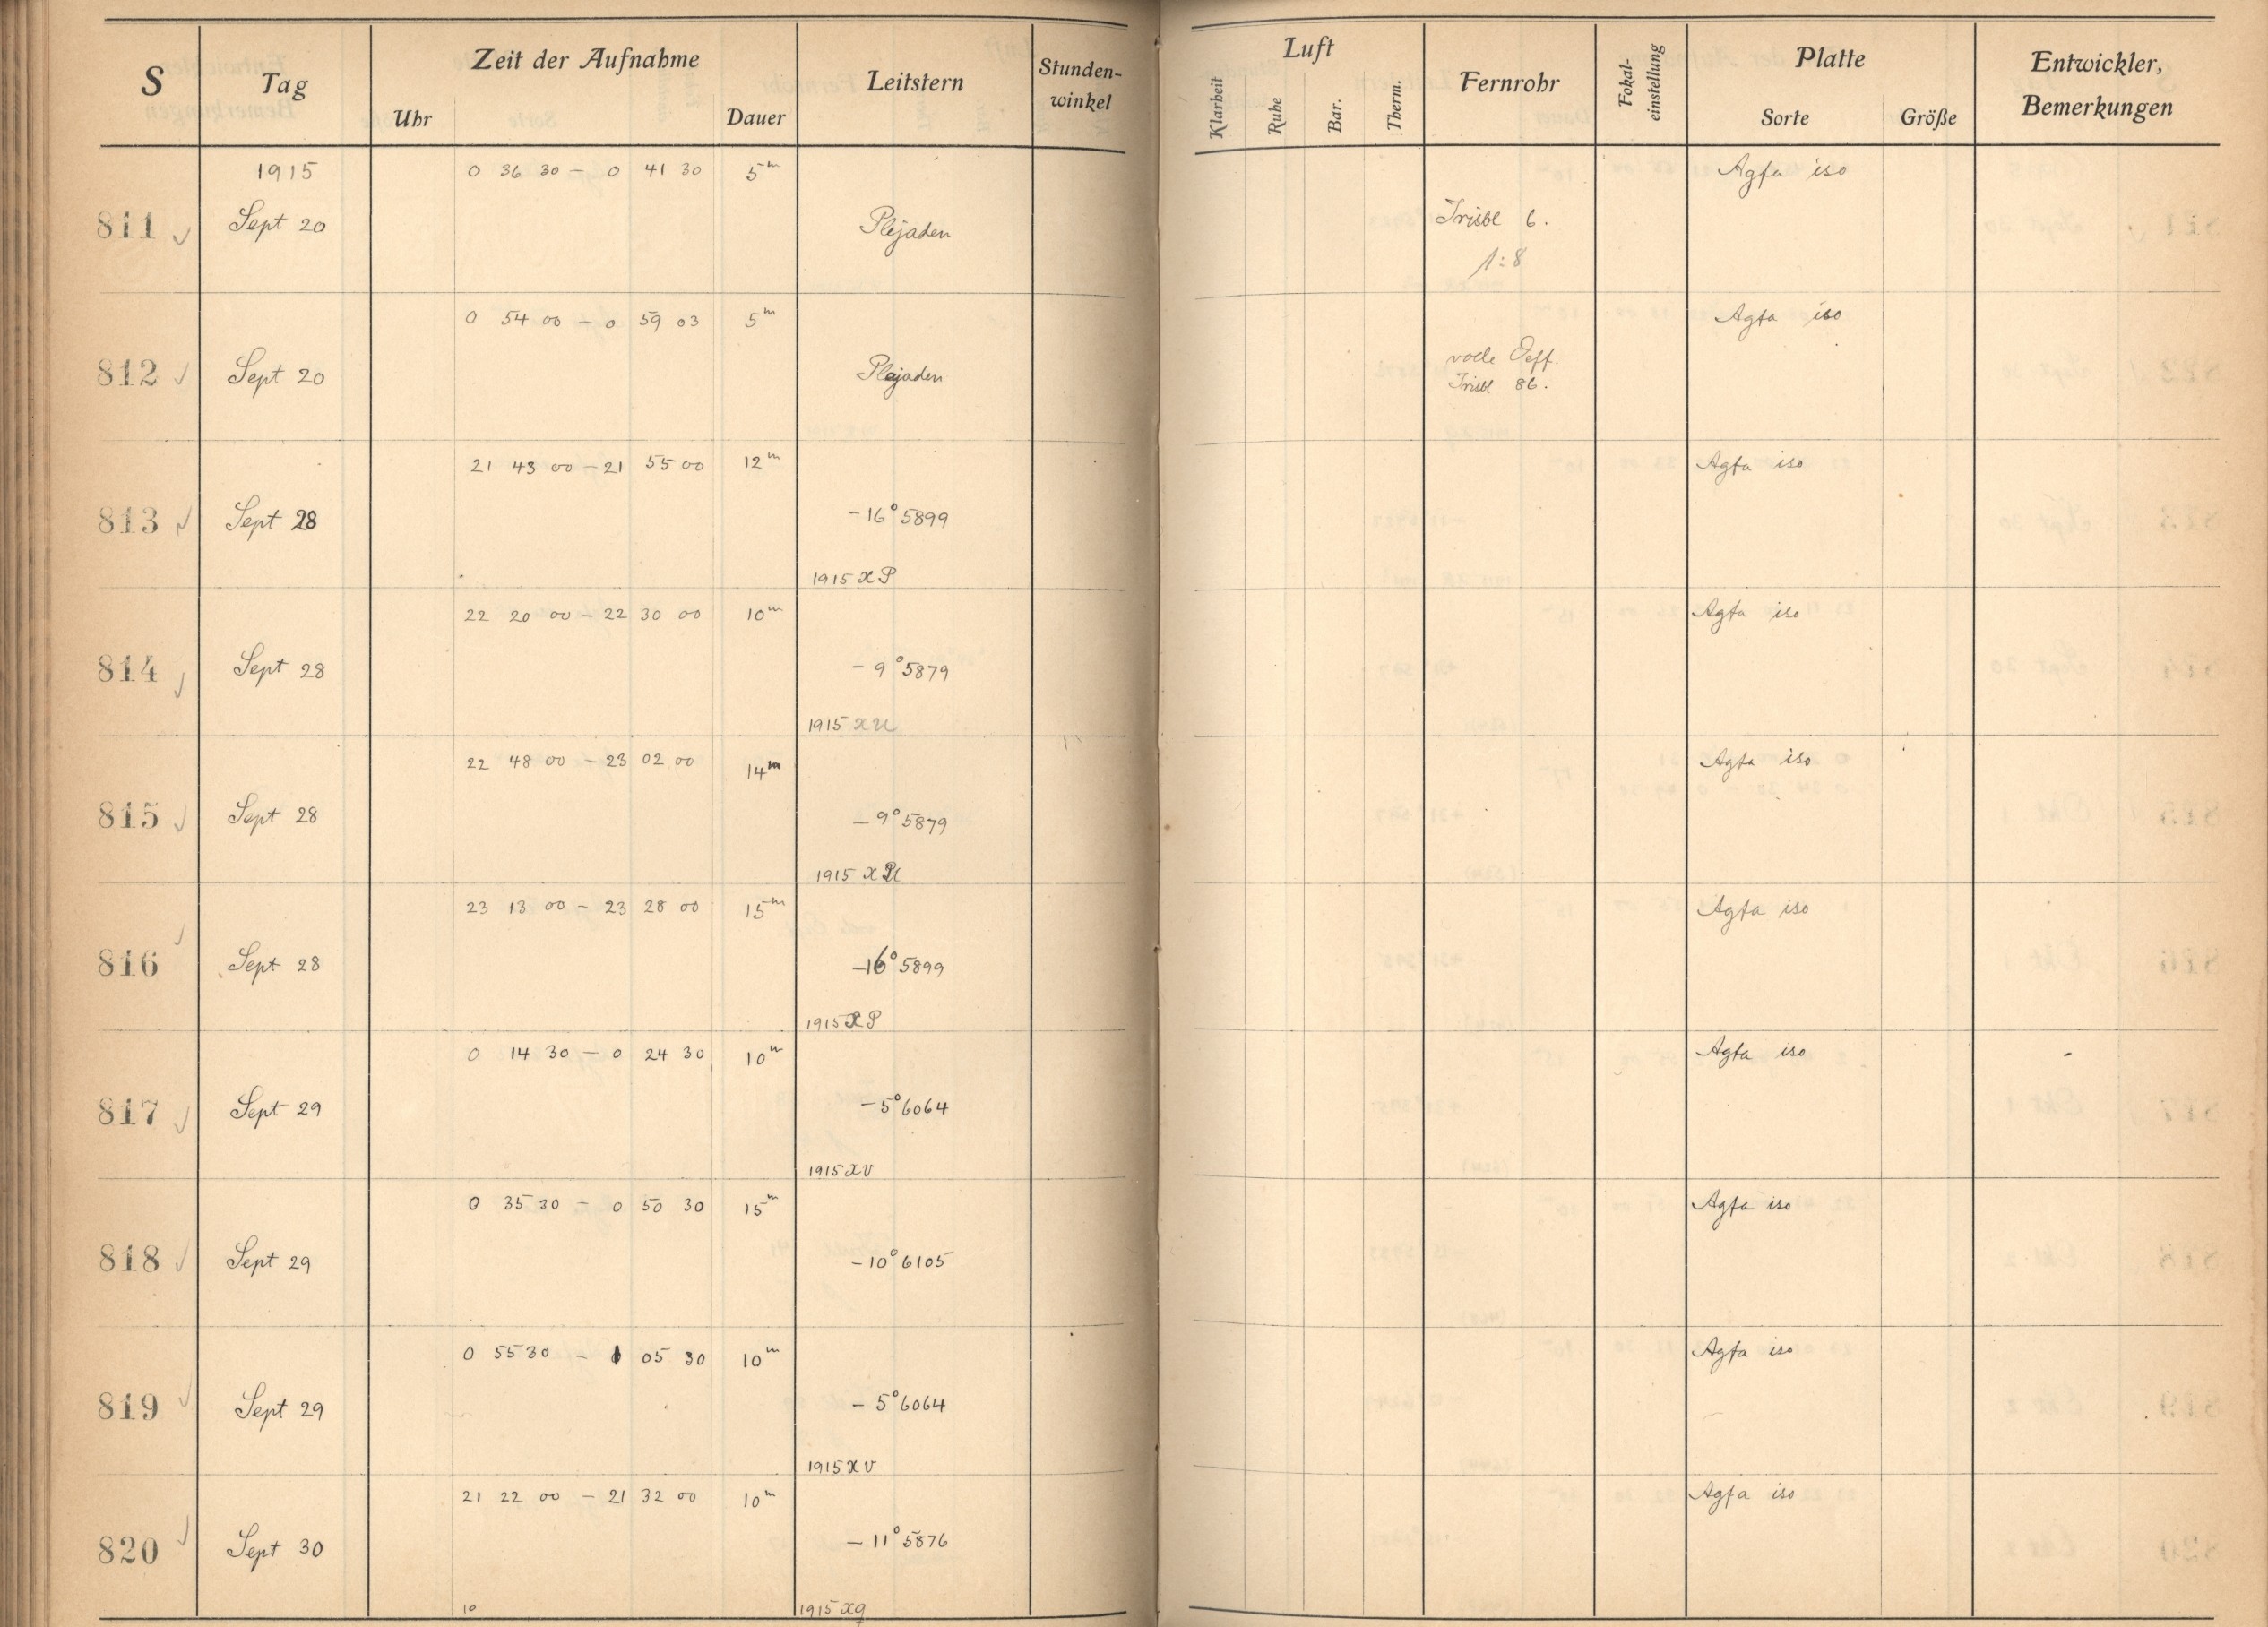 S Tag Zeit der Aufnahme Leitstern Stunden-winkel Luft Fernrohr Fokal-einstellung Platte Entwickler, Bemerkungen
Uhr Dauer Klarheit Ruhe Bar. Therm. Sorte Größe
1915 0 36 30 – 0 41 30 5m Agfa iso
811 Sept 20 Plejaden Irisbl 6.
1:8
0 54 00 – 0 59 03 5m Agfa iso
812 Sept 20 Plejaden volle Oeff.
Irisbl 86.
21 43 00 – 21 55 00 12m Agfa iso
813 Sept 28 –16° 5899
1915 XP
22 20 00 – 22 30 00 10m Agfa iso
814 Sept 28 –9° 5879
1915 XU
22 48 00 – 23 02 00 14m Agfa iso
815 Sept 28 –9° 5879
1915 XU
23 13 00 – 23 28 00 15m Agfa iso
816 Sept 28 –16° 5899
1915 XP
0 14 30 – 0 24 30 10m Agfa iso
817 Sept 29 –5° 6064
1915 XV
0 35 30 – 0 50 30 15m Agfa iso
818 Sept 29 –10° 6105
0 55 30 – 1 05 30 10m Agfa iso
819 Sept 29 –5° 6064
1915 XV
21 22 00 – 21 32 00 10m Agfa iso
820 Sept 30 –11° 5876
10 1915 XQ